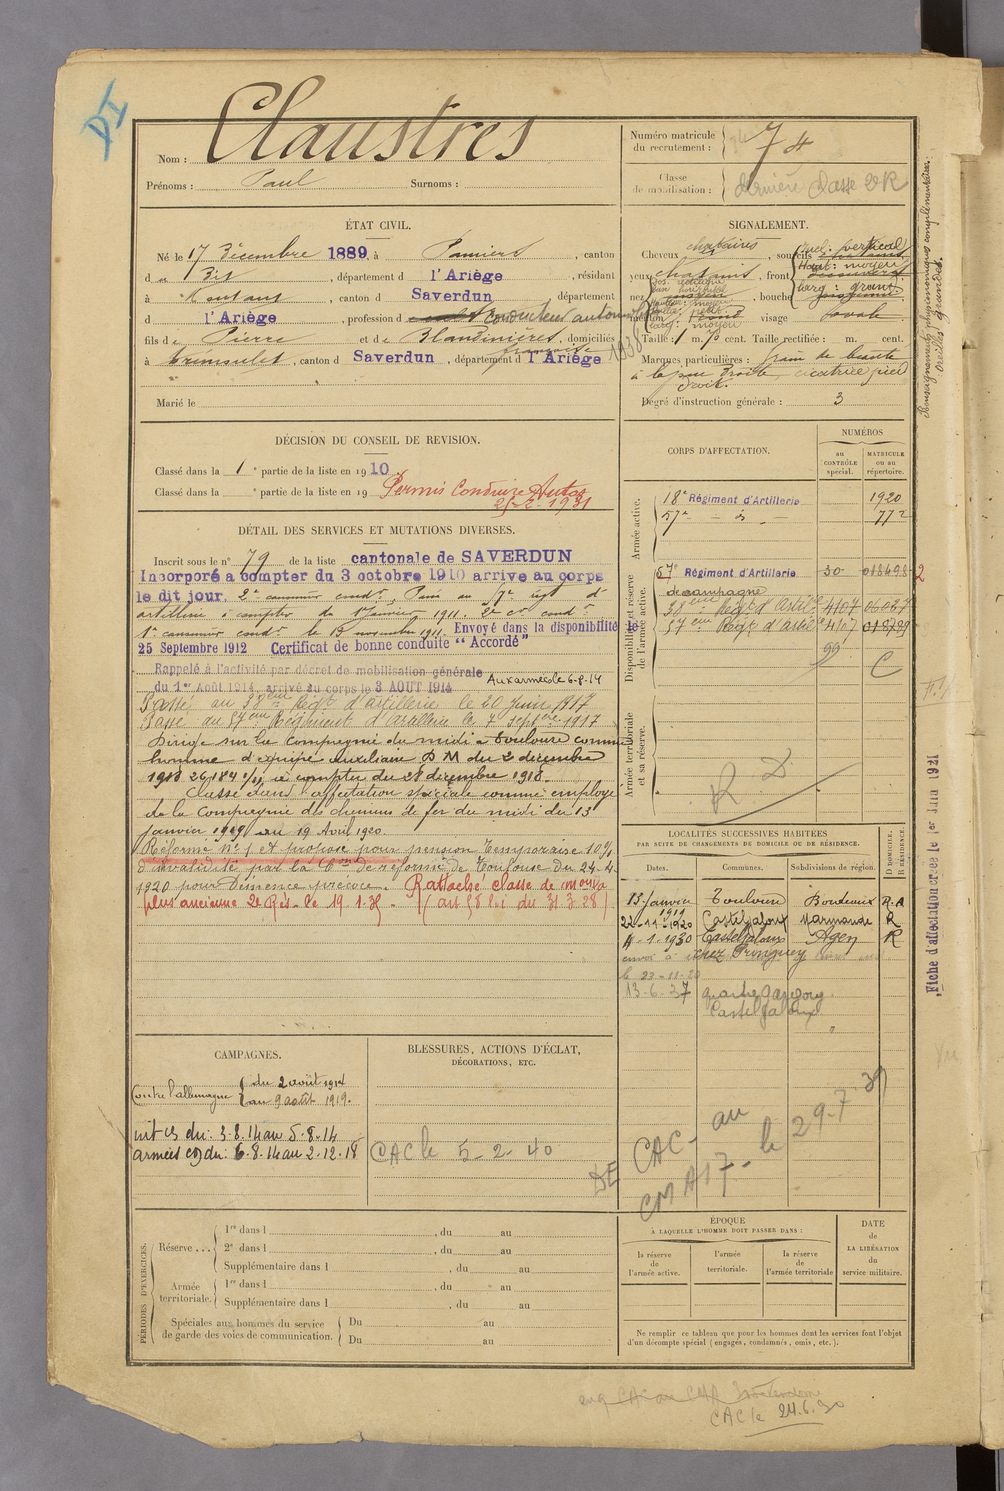 PI
Nom : Claustres
Prénoms : Paul Surnoms :
Numéro matricule du recrutement : 74
Classe de mobilisation : dernière Classe 2e R
ÉTAT CIVIL.
Né le 17 Décembre 1889, à Pamiers, canton
d u Dit, département d l'Ariège, résidant
à Montaut, canton d Saverdun département
d l'Ariège, profession d conducteur automobile
fils de Pierre et de Blandinières, domiciliés
françoise
à Trémoulet, canton d Saverdun, département d l'Ariège
1938
Marié le
SIGNALEMENT.
Cheveux chataires, sourcils
yeux chatains, front
incl: vertical
Haut: moyen
Larg: grand
nez moyen, bouche moyenne
menton rond visage ovale
Larg: moyen
Taille : 1 m. 70 cent. Taille rectifiée : m. cent.
Marques particulières : grain de beauté
à la joue droite, cicatrice pied
droit.
Degré d'instruction générale : 3
Renseignements physionomiques complémentaires:
Oreilles grandes.
DÉCISION DU CONSEIL DE REVISION.
Classé dans la 1e partie de la liste en 1910
Classé dans la e partie de la liste en 19
Permis Conduire Autos
25-2-1931
DÉTAIL DES SERVICES ET MUTATIONS DIVERSES.
Inscrit sous le n° 79 de la liste cantonale de SAVERDUN
Incorporé a compter du 3 octobre 1910 arrive au corps
le dit jour. 2e canonnier condr. Passé au 57e régt d'
artillerie à compter du 1er Janvier 1911. 2e cr condr.
1er canonnier condr le 15 novembre 1911. Envoyé dans la disponibilité le
25 Septembre 1912 Certificat de bonne conduite "Accordé"
Rappelé à l'activité par décret de mobilisation générale
du 1er Août 1914, arrivé au corps le 3 AOUT 1914 Aux armées le 6-8-14
Passé au 38eme Régt d'artillerie le 20 juin 1917
Passé au 57eme Régiment d'Artillerie le 7 septbre 1917
Dirigé sur la Compagnie du midi à Toulouse comme
homme d'équipe auxiliaire D M du 2 décembre
1918 26,184 1/11 à compter du 28 décembre 1918.
Classé dans affectation spéciale comme employé
de la Compagnie des chemins de fer du midi du 13
janvier 1919 au 19 Avril 1920.
Réformé n° 1 et proposé pour pension temporaire 10%
d'invalidité par la Con de réforme de Toulouse du 24-4-
1920 pour Démence précoce. Rattaché classe de mobon
plus ancienne 2e Rés. le 19.1.35 (art 58 loi du 31-3-28)
CORPS D'AFFECTATION.
NUMÉROS
au CONTRÔLE spécial.
MATRICULE ou au répertoire.
Armée active.
18e Régiment d'Artillerie 1920
57e - d° - 772
Disponibilité et réserve de l'armée active.
57e Régiment d'Artillerie 30 018498 2
de campagne
38eme Régt d'Artillie 4107 06087
57eme Régt d'artillie 4107 018789
99
C
Armée territoriale et sa réserve.
R D
LOCALITÉS SUCCESSIVES HABITÉES
PAR SUITE DE CHANGEMENTS DE DOMICILE OU DE RÉSIDENCE.
Dates. Communes. Subdivisions de région. D DOMICILE. R RÉSIDENCE.
13 Janvier 1919 Toulouse Bordeaux R.A
22-11-1920 Casteljaloux Marmande R
11-1-1930 Casteljaloux Agen R
chez Pringuey
le 23-11-20
13-6-37 quartier
Casteljaloux
Fiche d'affectation créée le 1er Juin 1921
CAMPAGNES.
Contre l'allemagne du 2 août 1914
au 9 août 1919.
int cs du: 3-8.14 au 5-8-14
armées cd du: 6-8-14 au 2-12-18
BLESSURES, ACTIONS D'ÉCLAT,
DÉCORATIONS, ETC.
CAC le 5-2-40
DE CAC - au
CM A17 - le 29-7-39
PÉRIODES D'EXERCICES.
Réserve ...
1re dans l , du au
2e dans l , du au
Supplémentaire dans l , du au
Armée territoriale.
1re dans l , du au
Supplémentaire dans l , du au
Spéciales aux hommes du service de garde des voies de communication.
Du au
Du au
ÉPOQUE
À LAQUELLE L'HOMME DOIT PASSER DANS :
la réserve de l'armée active.
l'armée territoriale.
la réserve de l'armée territoriale
DATE
de
LA LIBÉRATION
du
service militaire.
Ne remplir ce tableau que pour les hommes dont les services font l'objet
d'un décompte spécial (engagés, condamnés, omis, etc.).
CAC le 24.6.30